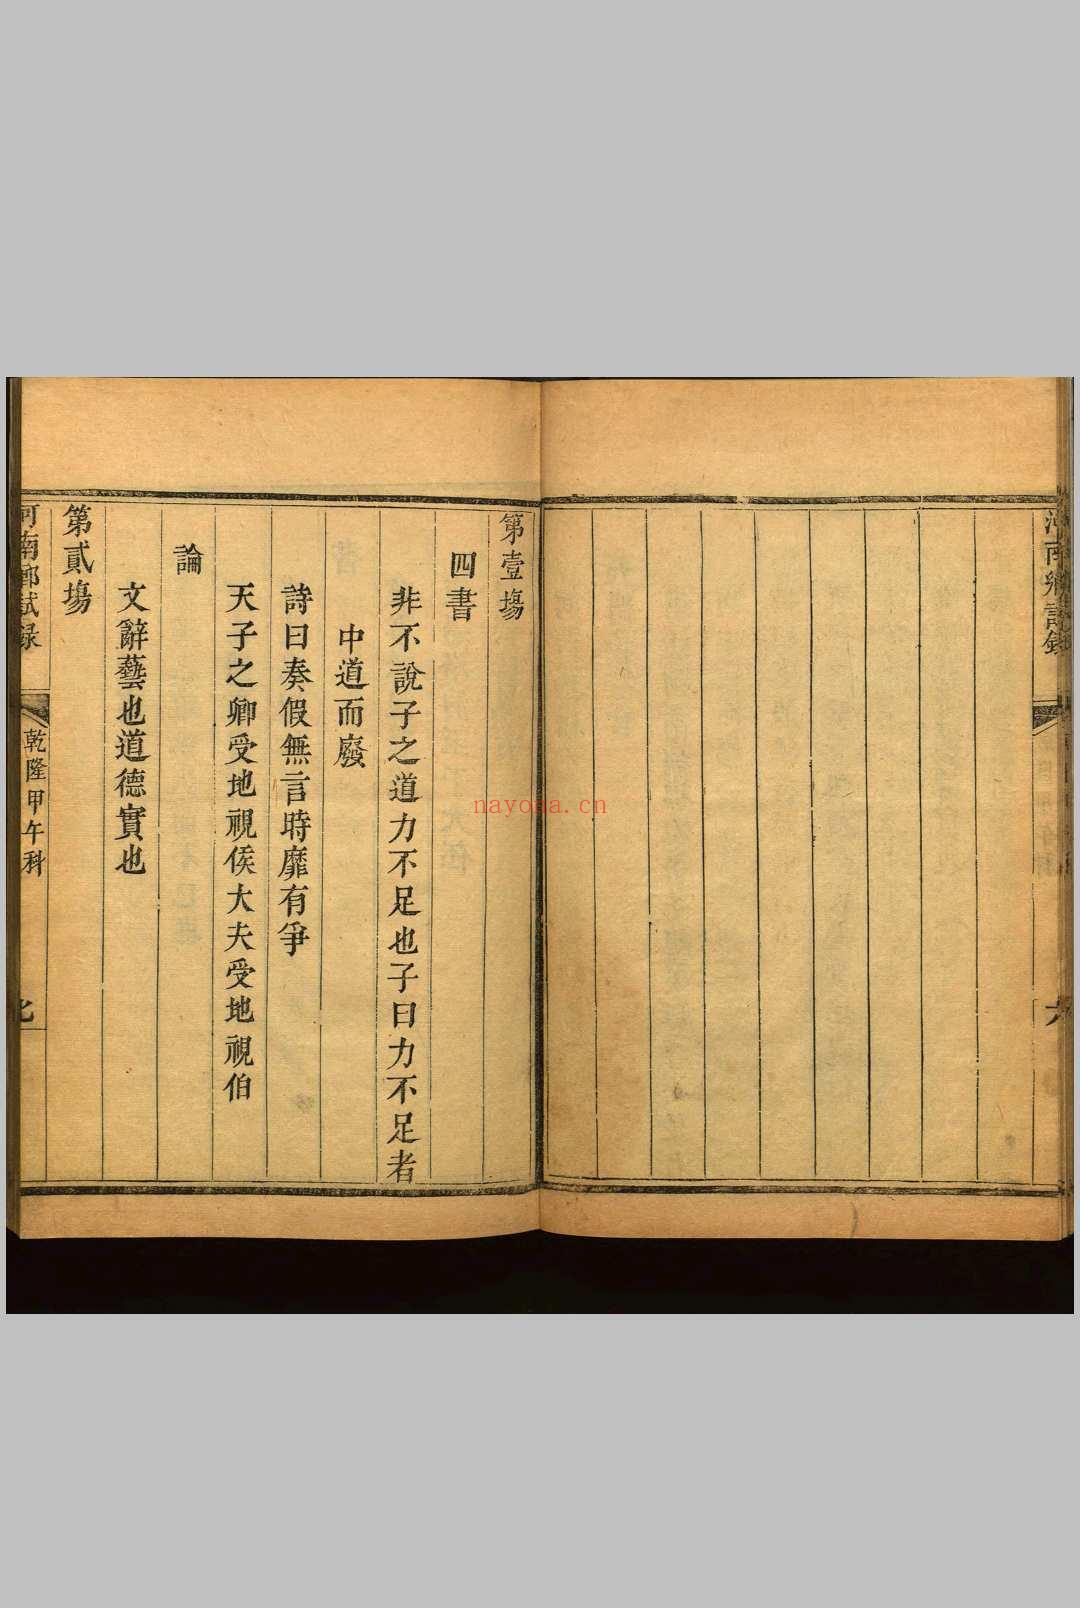 河南鄉試錄
六
第壹塲
四書
非不說子之道力不足也子曰力不足者
中道而廢
詩曰奏假無言時靡有爭
天子之卿受地視侯大夫受地視伯
論
文辭藝也道德實也
第貳塲
河南鄉試録
乾隆甲午科
七
nayona.cn